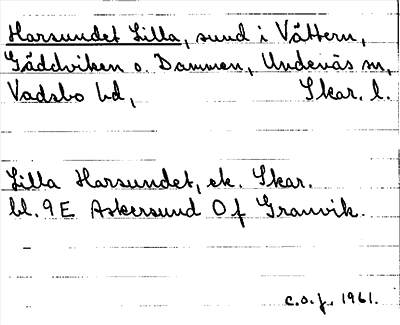 Harsundet Lilla, sund i Vättern,
Gäddviken o. Dammen, Undenäs sn,
Vadsbo hd, Skar. l.
Lilla Harsundet, ek. Skar.
bl. 9E Askersund 0f Granvik.
c.o.j. 1961.